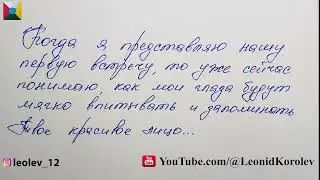 Когда я представляю нашу
первую встречу, то уже сейчас
понимаю, как мои глаза будут
мягко впитывать и запоминать
Твое красивое лицо...
leolev_12
YouTube.com/@LeonidKorolev